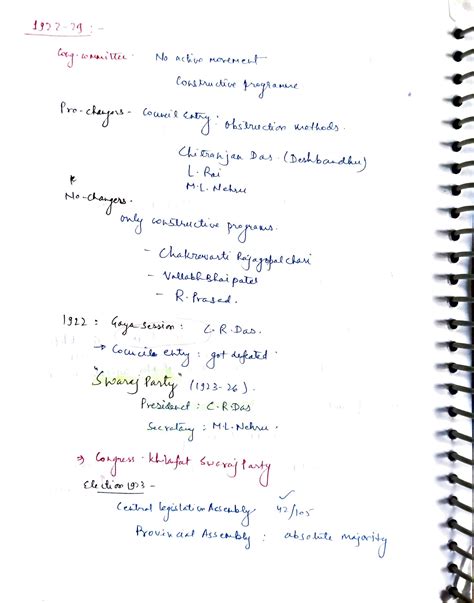 1922-29 : -
Cong-committee No active movement
Constructive programme
Pro-changers - Council Entry : obstruction methods.
Chitranjan Das. (Deshbandhu)
L. Rai
M.L. Nehru
No-changers.
only constructive programs.
- Chakravarti Rajagopalchari
- Vallabhbhai patel
- R. Prasad.
1922 : Gaya session : C.R. Das.
→ Councils entry : got defeated
"Swaraj Party" (1923-26).
President : C.R. Das
Secretary : M.L. Nehru
⇒ Congress - Khilafat Swaraj Party
Election 1923 -
Central legislation Assembly 42/105
Provincial Assembly : absolute majority